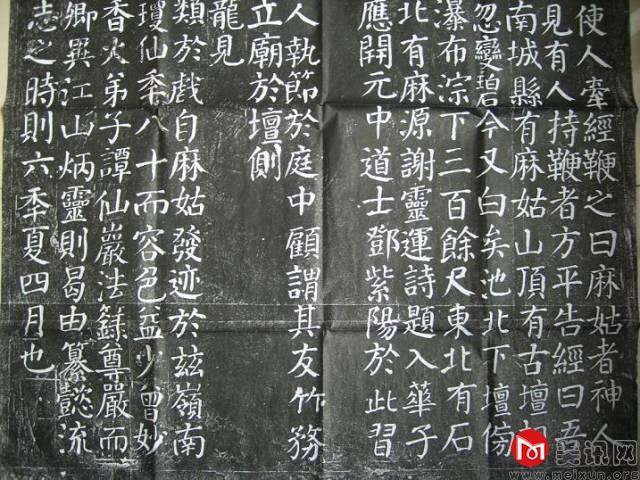 使人牽經鞭之曰麻姑者神人
見有人持鞭者方平告經曰吾
南城縣有麻姑山頂有古壇相
忽變碧今又白矣池北下壇傍
瀑布淙下三百餘尺東北有石
北有麻源謝靈運詩題入華子
應開元中道士鄧紫陽於此習
人執節於庭中顧謂其友竹務
立廟於壇側
龍見
類於戲自麻姑發迹於茲嶺南
瓊仙秊八十而容色益少曾妙
香火弟子譚仙巖法籙尊嚴而
卿異江山炳靈則曷由纂懿流
志之時則六秊夏四月也
美讯网
www.meixun.org